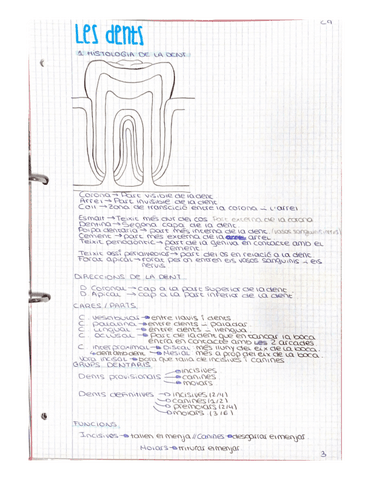 Les dents
1. HISTOLOGIA DE LA DENT.
Corona → Part visible de la dent
Arrel → Part invisible de la dent
Coll → Zona de transició entre la corona – l'arrel
Esmalt → Teixit més dur del cos. Part externa de la corona
Dentina → Segona capa de la dent
Polpa dentària → part més interna de la dent (vasos sanguinis)
Cement → part més externa de la arrel
Teixit periodontic → part de la geniva en contacte amb el cement
Teixit ossi → part de l'os en relació a la dent
Forat apical → forat per on entren els vasos sanguinis – els nervis
DIRECCIONS DE LA DENT
Coronal → cap a la part superior de la dent
Apical → cap a la part inferior de la dent
CARES/PARTS.
C. vestibular → entre llavis i dents
C. palatina → entre dents – paladar
C. Lingual → entre dents – llengua
C. oclusal → Part de la dent que en tancar la boca entra en contacte amb les 2 arcades
C. interproximal → Distal → més lluny del eix de la boca
→ Mesial → més a prop del eix de la boca
Vora incisal → part que talla de incisives i canines
GRUPS DENTARIS
Dents provisionals → incisives
→ canines
→ molars
Dents definitives → incisives (2/4)
→ canines (1/2)
→ premolars (2/4)
→ molars (3/6)
FUNCIONS.
Incisives → tallen el menjar / Canines → desgarrar el menjar
Molars → triturar el menjar
3